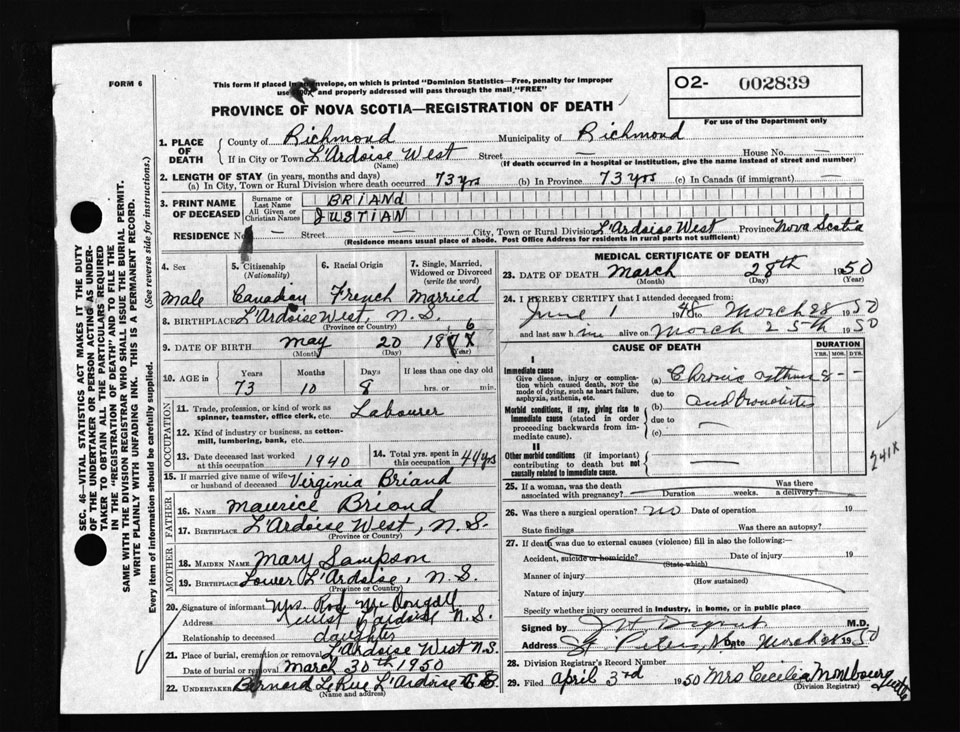 FORM 6
This form if placed in an envelope, on which is printed "Dominion Statistics—Free, penalty for improper
use $300" and properly addressed will pass through the mail "FREE"
O2- 002839
For use of the Department only
PROVINCE OF NOVA SCOTIA—REGISTRATION OF DEATH
1. PLACE OF DEATH
County of Richmond Municipality of Richmond
If in City or Town L'Ardoise West Street — House No. —
(Name) (If death occurred in a hospital or institution, give the name instead of street and number)
2. LENGTH OF STAY (in years, months and days)
(a) In City, Town or Rural Division where death occurred 73 yrs (b) In Province 73 yrs (c) In Canada (if immigrant) —
3. PRINT NAME OF DECEASED
Surname or Last Name BRIAND
All Given or Christian Names JUSTIAN
RESIDENCE No. — Street — City, Town or Rural Division L'Ardoise West Province Nova Scotia
(Residence means usual place of abode. Post Office Address for residents in rural parts not sufficient)
4. Sex Male
5. Citizenship (Nationality) Canadian
6. Racial Origin French
7. Single, Married, Widowed or Divorced (write the word) Married
8. BIRTHPLACE L'Ardoise West, N.S.
(Province or Country)
9. DATE OF BIRTH May 20 187 6
(Month) (Day) (Year)
10. AGE in Years Months Days If less than one day old
73 10 8 hrs. or min.
OCCUPATION
11. Trade, profession, or kind of work as spinner, teamster, office clerk, etc. Labourer
12. Kind of industry or business, as cotton-mill, lumbering, bank, etc.
13. Date deceased last worked at this occupation 1940
14. Total yrs. spent in this occupation 44 yrs
15. If married give name of wife or husband of deceased Virginia Briand
FATHER
16. NAME Maurice Briand
17. BIRTHPLACE L'Ardoise West, N.S.
(Province or Country)
MOTHER
18. MAIDEN NAME Mary Sampson
19. BIRTHPLACE Lower L'Ardoise, N.S.
(Province or Country)
20. Signature of informant Mrs. Rod McDougall
Address West L'Ardoise N.S.
Relationship to deceased daughter
21. Place of burial, cremation or removal L'Ardoise West N.S.
Date of burial or removal March 30th 1950
22. UNDERTAKER Bernard LeRue L'Ardoise
(Name and address)
MEDICAL CERTIFICATE OF DEATH
23. DATE OF DEATH March 28th 1950
(Month) (Day) (Year)
24. I HEREBY CERTIFY that I attended deceased from:
June 1 1948 to March 28 1950
and last saw him alive on March 25th 1950
CAUSE OF DEATH
DURATION
YRS. MOS. DYS.
I
Immediate cause
Give disease, injury or complication which caused death, not the mode of dying, such as heart failure, asphyxia, asthenia, etc.
(a) Chronic asthma 8 - -
due to
Morbid conditions, if any, giving rise to immediate cause (stated in order proceeding backwards from immediate cause).
(b) and bronchitis
due to
(c) —
II
Other morbid conditions (if important) contributing to death but not causally related to immediate cause.
—
241X
25. If a woman, was the death associated with pregnancy? Duration weeks. Was there a delivery?
26. Was there a surgical operation? no Date of operation 19
State findings Was there an autopsy?
27. If death was due to external causes (violence) fill in also the following:
Accident, suicide or homicide? Date of injury 19
(State which)
Manner of injury
(How sustained)
Nature of injury
Specify whether injury occurred in industry, in home, or in public place
Signed by M.D.
Address St. Peters, N.S. Date March 28 1950
28. Division Registrar's Record Number
29. Filed April 3rd 1950 Mrs Cecilia Mombourquette
(Division Registrar)
SEC. 46—VITAL STATISTICS ACT MAKES IT THE DUTY
OF THE UNDERTAKER OR PERSON ACTING AS UNDER-
TAKER TO OBTAIN ALL THE PARTICULARS REQUIRED
IN THE "REGISTRATION OF DEATH" AND TO FILE THE
SAME WITH THE DIVISION REGISTRAR WHO SHALL ISSUE THE BURIAL PERMIT.
WRITE PLAINLY WITH UNFADING INK. THIS IS A PERMANENT RECORD.
Every item of information should be carefully supplied. (See reverse side for instructions.)